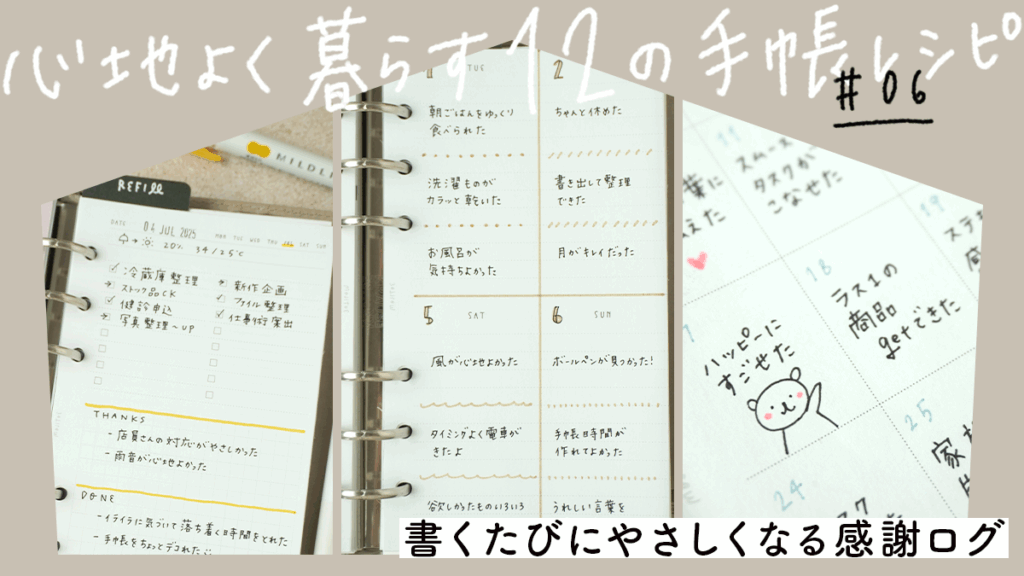 心地よく暮らす12の手帳レシピ
#06
REFIll
MILDLI
DATE 04 JUL 2025
MON TUE WED THU FRI SAT SUN
20% 34/25℃
冷蔵庫整理
ストック品CK
健診申込
写真整理〜UP
新作企画
ファイル整理
仕事術案出
THANKS
- 店員さんの対応がやさしかった
- 雨音が心地よかった
DONE
- イライラに気づいて落ち着く時間をとれた
- 手帳をちょっとデコれた
1 TUE
朝ごはんをゆっくり
食べられた
洗濯ものが
カラッと乾いた
お風呂が
気持ちよかった
2
ちゃんと休めた
書き出して整理
できた
月がキレイだった
5 SAT
風が心地よかった
タイミングよく電車が
きたよ
欲しかったものいろいろ
6 SUN
ボールペンが見つかった!
手帳時間が
作れてよかった
うれしい言葉を
11
スムーズ
タスクが
こなせた
葉に
えた
19
ステ
18
ラス1の
商品
getできた
ハッピーに
すごせた
25
家
24
スク
書くたびにやさしくなる感謝ログ